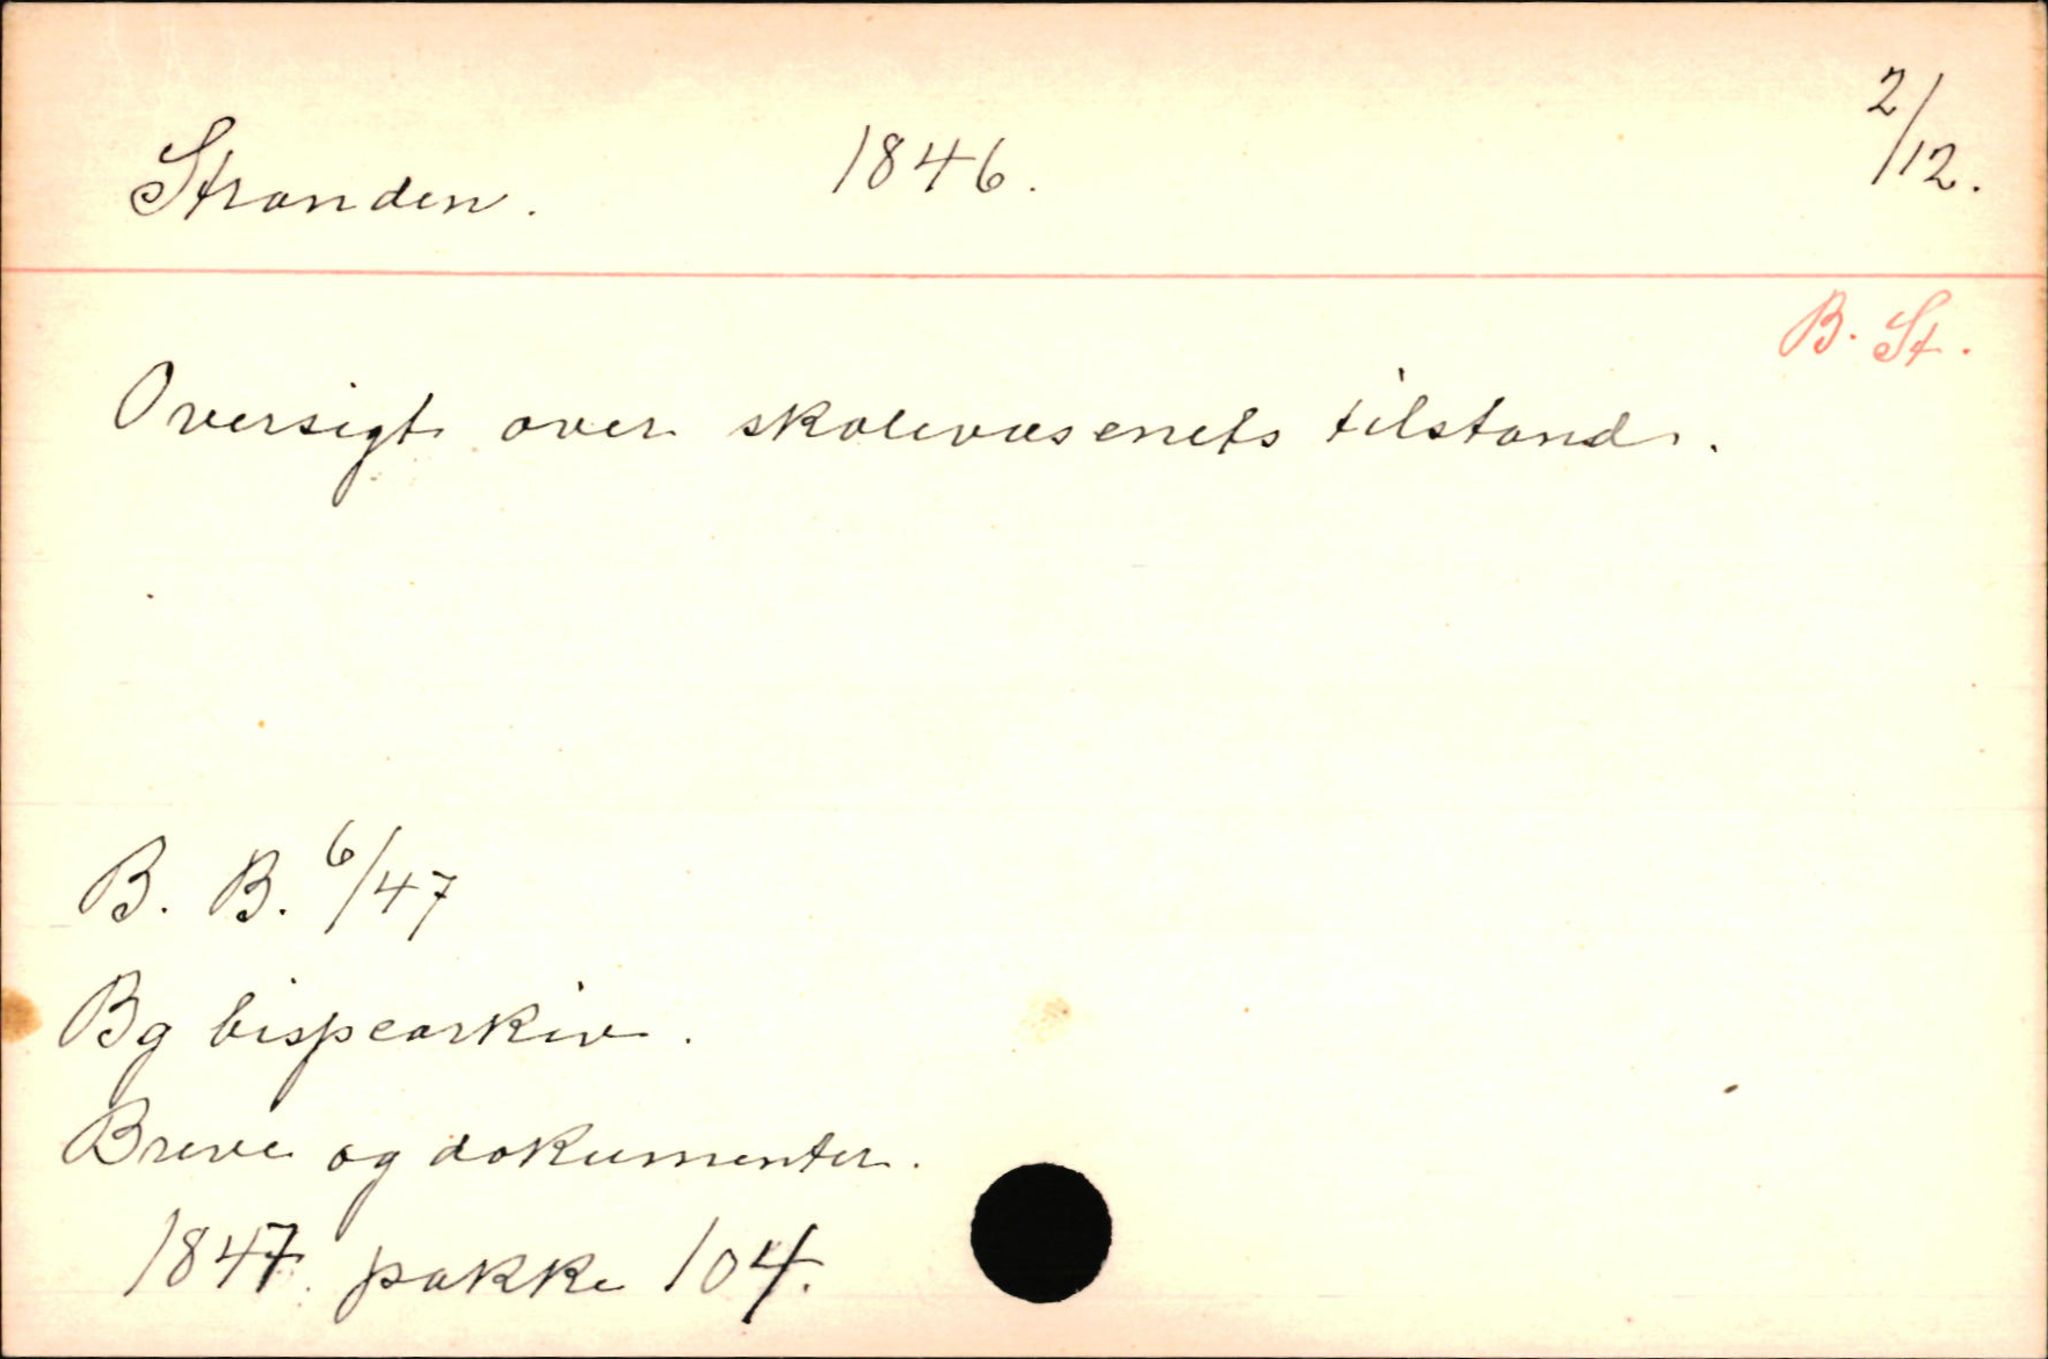 Stranden. 1846. 2/12.
B. St.
Oversigt over skolevæsenets tilstand.
B. B. 6/47
Bg bispearkiv.
Breve og dokumenter.
1847. pakke 104.